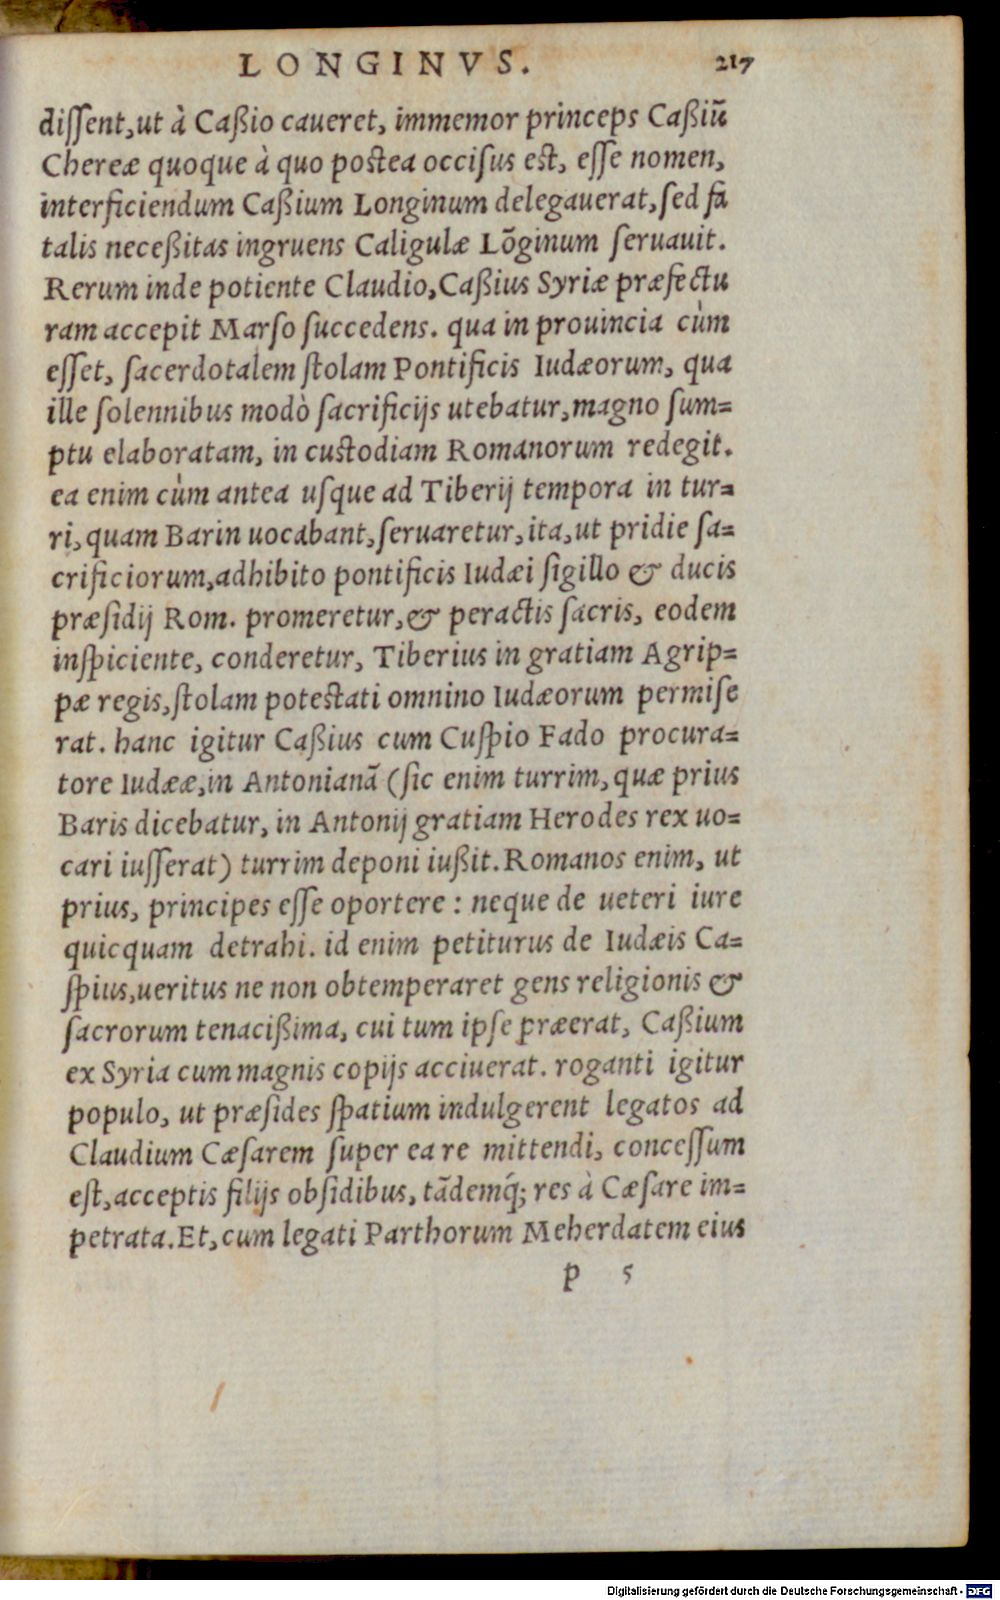 LONGINVS. 217
dissent, ut à Caßio caueret, immemor princeps Caßiũ
Chereæ quoque à quo postea occisus est, esse nomen,
interficiendum Caßium Longinum delegauerat, sed fa
talis neceßitas ingruens Caligulæ Lõginum seruauit.
Rerum inde potiente Claudio, Caßius Syriæ præfectu
ram accepit Marso succedens. qua in prouincia cùm
esset, sacerdotalem stolam Pontificis Iudæorum, qua
ille solennibus modò sacrificijs utebatur, magno sum=
ptu elaboratam, in custodiam Romanorum redegit.
ea enim cùm antea usque ad Tiberij tempora in tur=
ri, quam Barin uocabant, seruaretur, ita, ut pridie sa=
crificiorum, adhibito pontificis Iudæi sigillo & ducis
præsidij Rom. promeretur, & peractis sacris, eodem
inspiciente, conderetur, Tiberius in gratiam Agrip=
pæ regis, stolam potestati omnino Iudæorum permise
rat. hanc igitur Caßius cum Cuspio Fado procura=
tore Iudææ, in Antonianã (sic enim turrim, quæ prius
Baris dicebatur, in Antonij gratiam Herodes rex uo=
cari iusserat) turrim deponi iußit. Romanos enim, ut
prius, principes esse oportere : neque de ueteri iure
quicquam detrahi. id enim petiturus de Iudæis Ca=
spius, ueritus ne non obtemperaret gens religionis &
sacrorum tenacißima, cui tum ipse præerat, Caßium
ex Syria cum magnis copijs acciuerat. roganti igitur
populo, ut præsides spatium indulgerent legatos ad
Claudium Cæsarem super ea re mittendi, concessum
est, acceptis filijs obsidibus, tãdemq́; res à Cæsare im=
petrata. Et, cum legati Parthorum Meherdatem eius
p 5
Digitalisierung gefördert durch die Deutsche Forschungsgemeinschaft - DFG